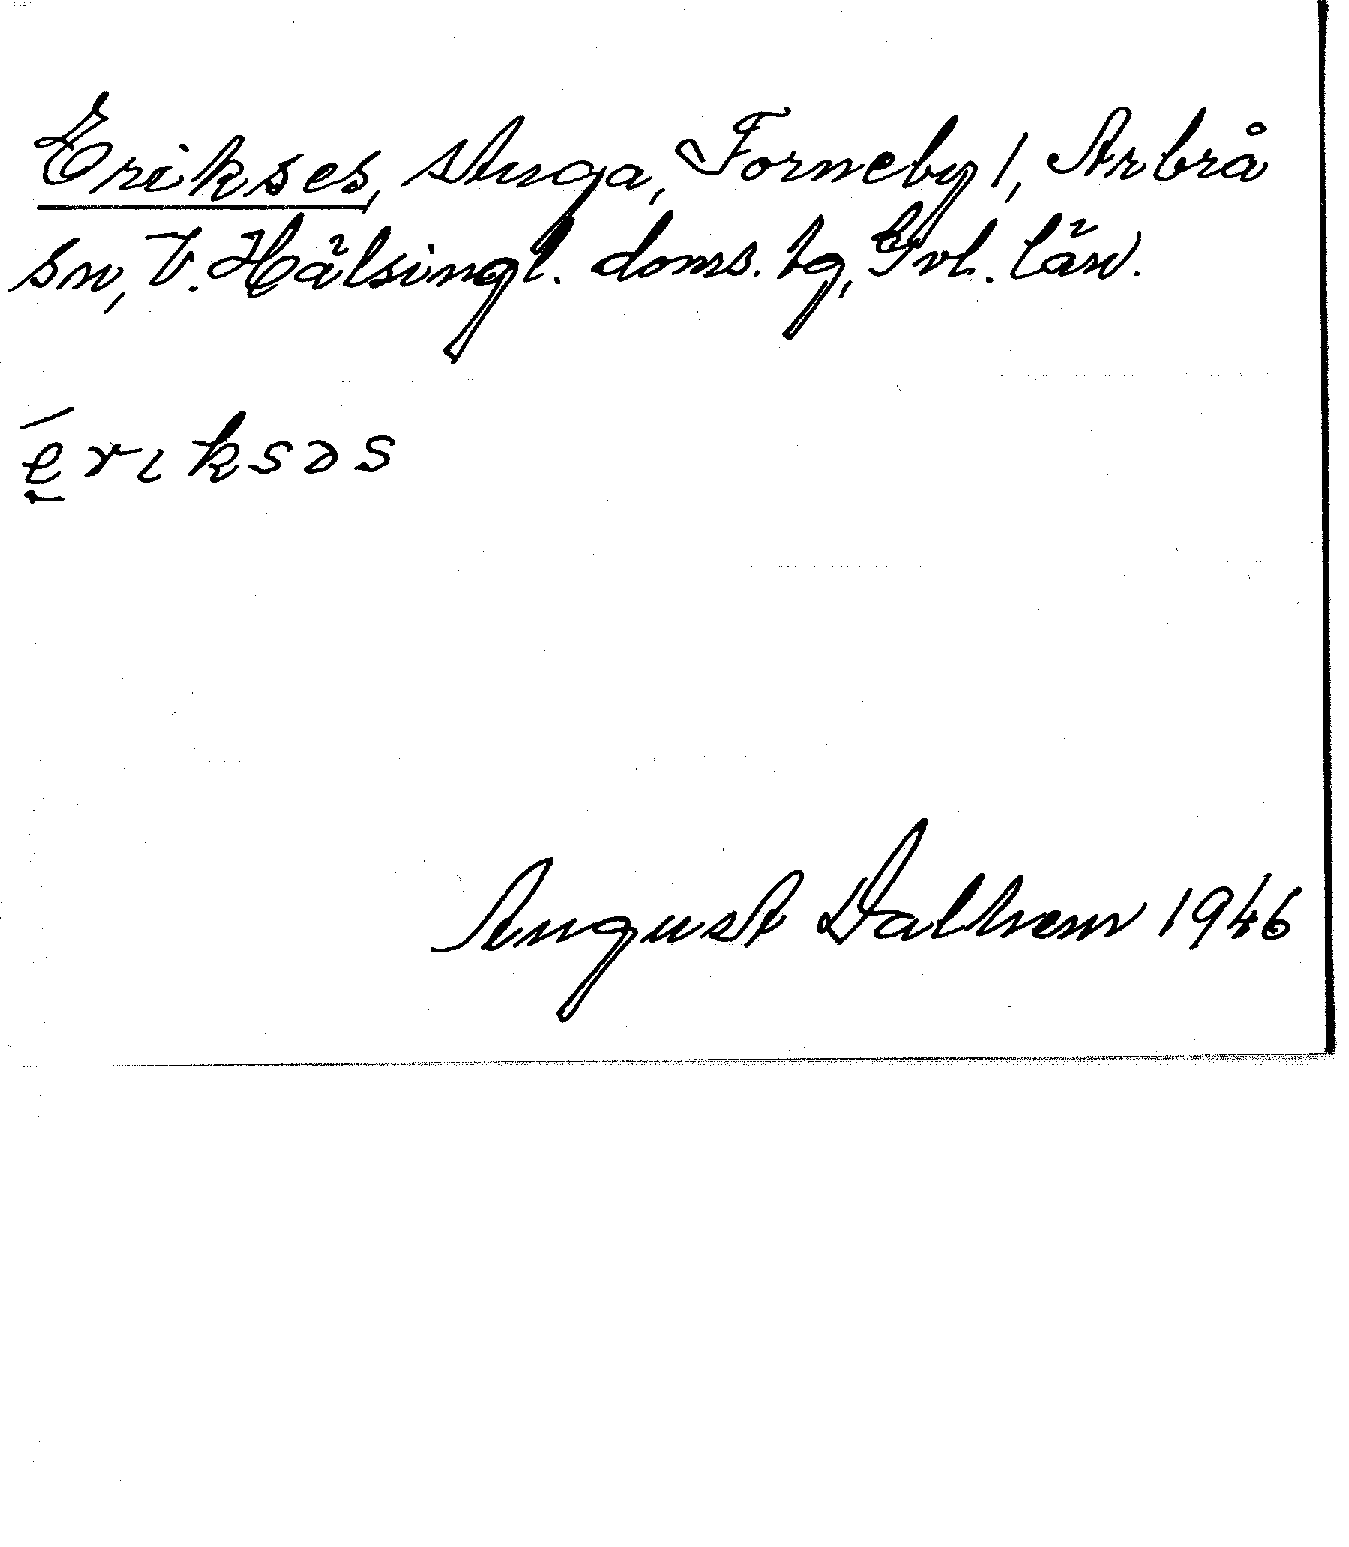 Erikses, stuga, Forneby 1, Arbrå
sn, V. Hälsingl. doms. tg, Gvl. län.
é̠rıksəs
August Dalhem 1946